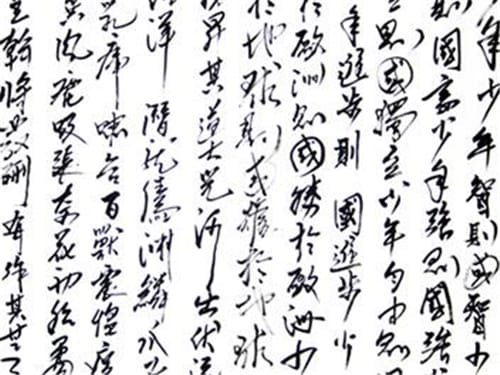 年少年智則國智少
則國富少年強則國強
則國獨立少年自由則
年進步則國進步少
於歐洲則國勝於歐洲少
於地球則國雄於地球
昇其道大光河出伏流
洋潛龍騰淵鱗爪
乳虎嘯谷百獸震惶
風塵吸張奇花初胎矞
將發硎有作其芒